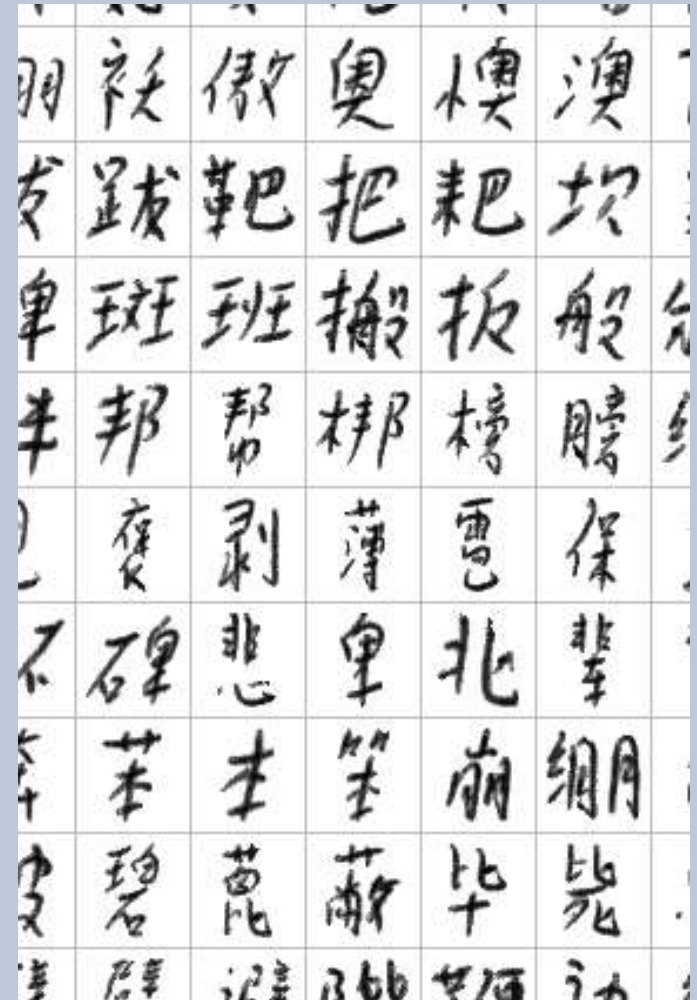 袄傲奥懊澳
跋靶把耙坎
斑班搬扳般
邦帮梆榜膀
褒剥薄雹保
碑悲卑北辈
苯本笨崩绷
碧蓖蔽毕毙